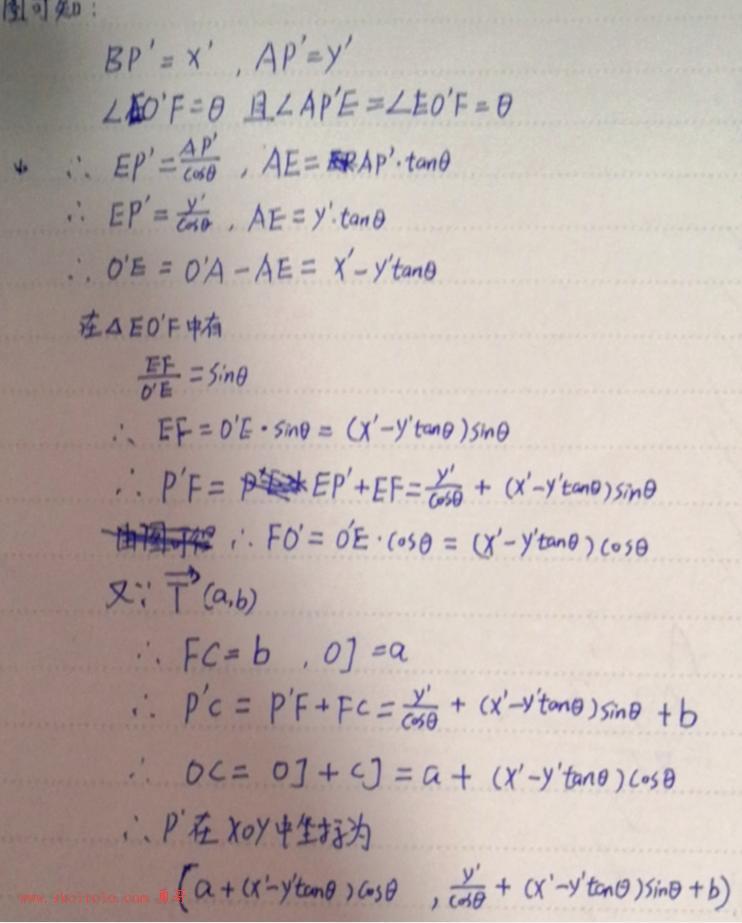 图可知:
BP'=x' , AP'=y'
∠EO'F=θ 且∠AP'E=∠EO'F=θ
∴ EP'=AP'/cosθ , AE=AP'·tanθ
∴ EP'=y'/cosθ , AE=y'·tanθ
∴ O'E=O'A-AE=x'-y'tanθ
在△EO'F中有
EF/O'E=sinθ
∴ EF=O'E·sinθ=(x'-y'tanθ)sinθ
∴ P'F=EP'+EF=y'/cosθ+(x'-y'tanθ)sinθ
∴ FO'=O'E·cosθ=(x'-y'tanθ)cosθ
又∵ T(a,b)
∴ FC=b , OJ=a
∴ P'C=P'F+FC=y'/cosθ+(x'-y'tanθ)sinθ+b
∴ OC=OJ+CJ=a+(x'-y'tanθ)cosθ
∴P'在XOY中坐标为
(a+(x'-y'tanθ)cosθ , y'/cosθ+(x'-y'tanθ)sinθ+b)